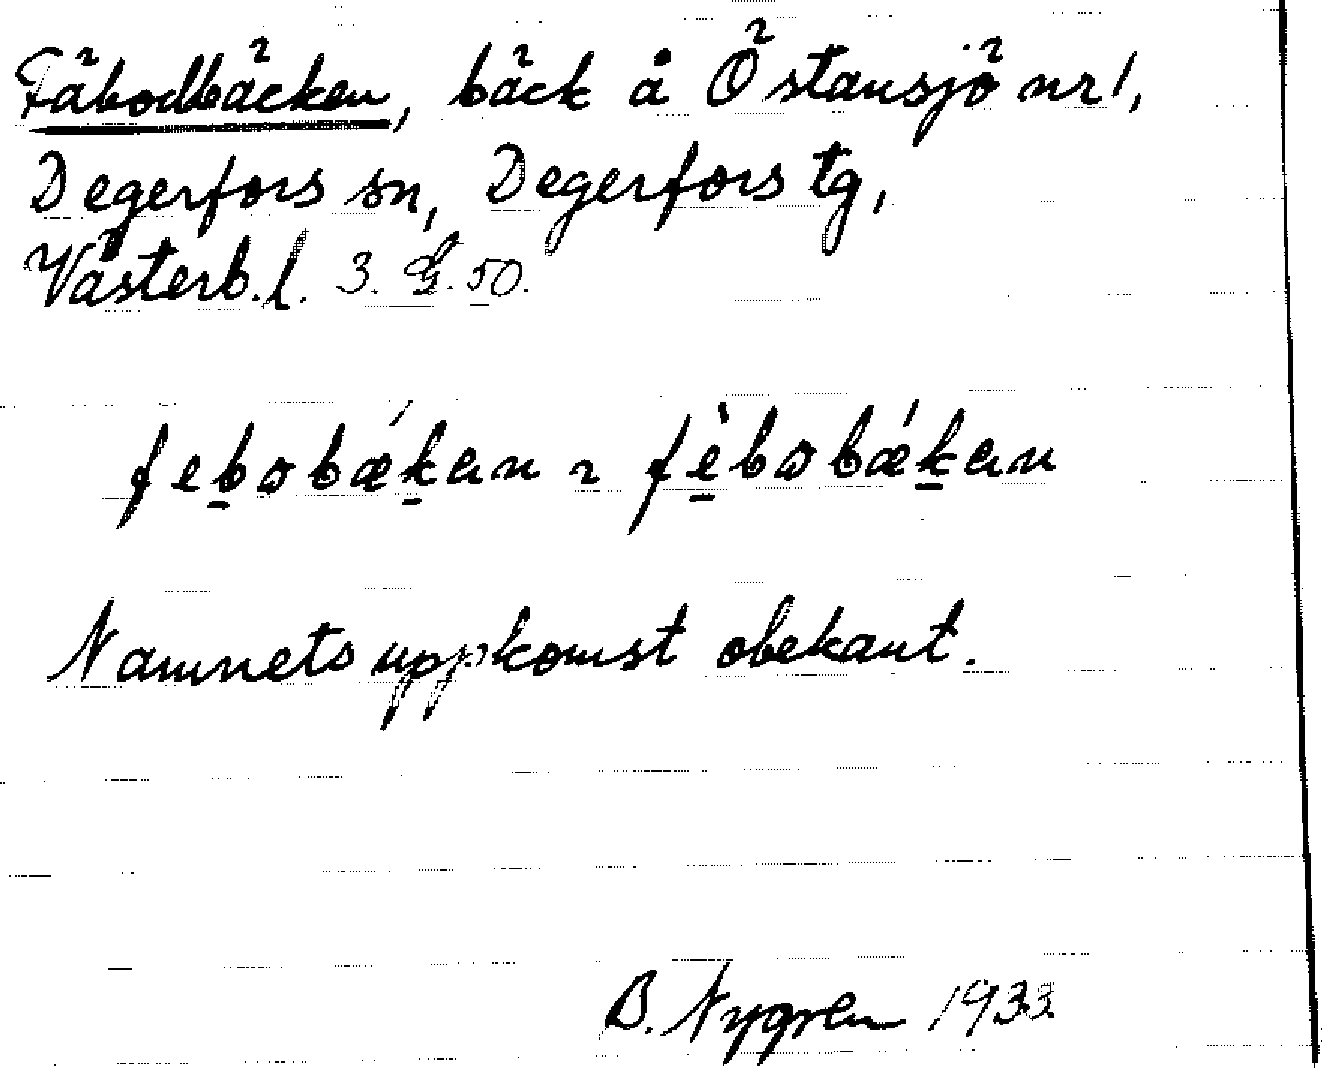 Fäbodbäcken, bäck å Östansjö nr 1,
Degerfors sn, Degerfors tg,
Västerb. l. 3. G. 50.
febobǽkan ~ fèbobǽkan
Namnets uppkomst obekant.
B. Nygren 1933